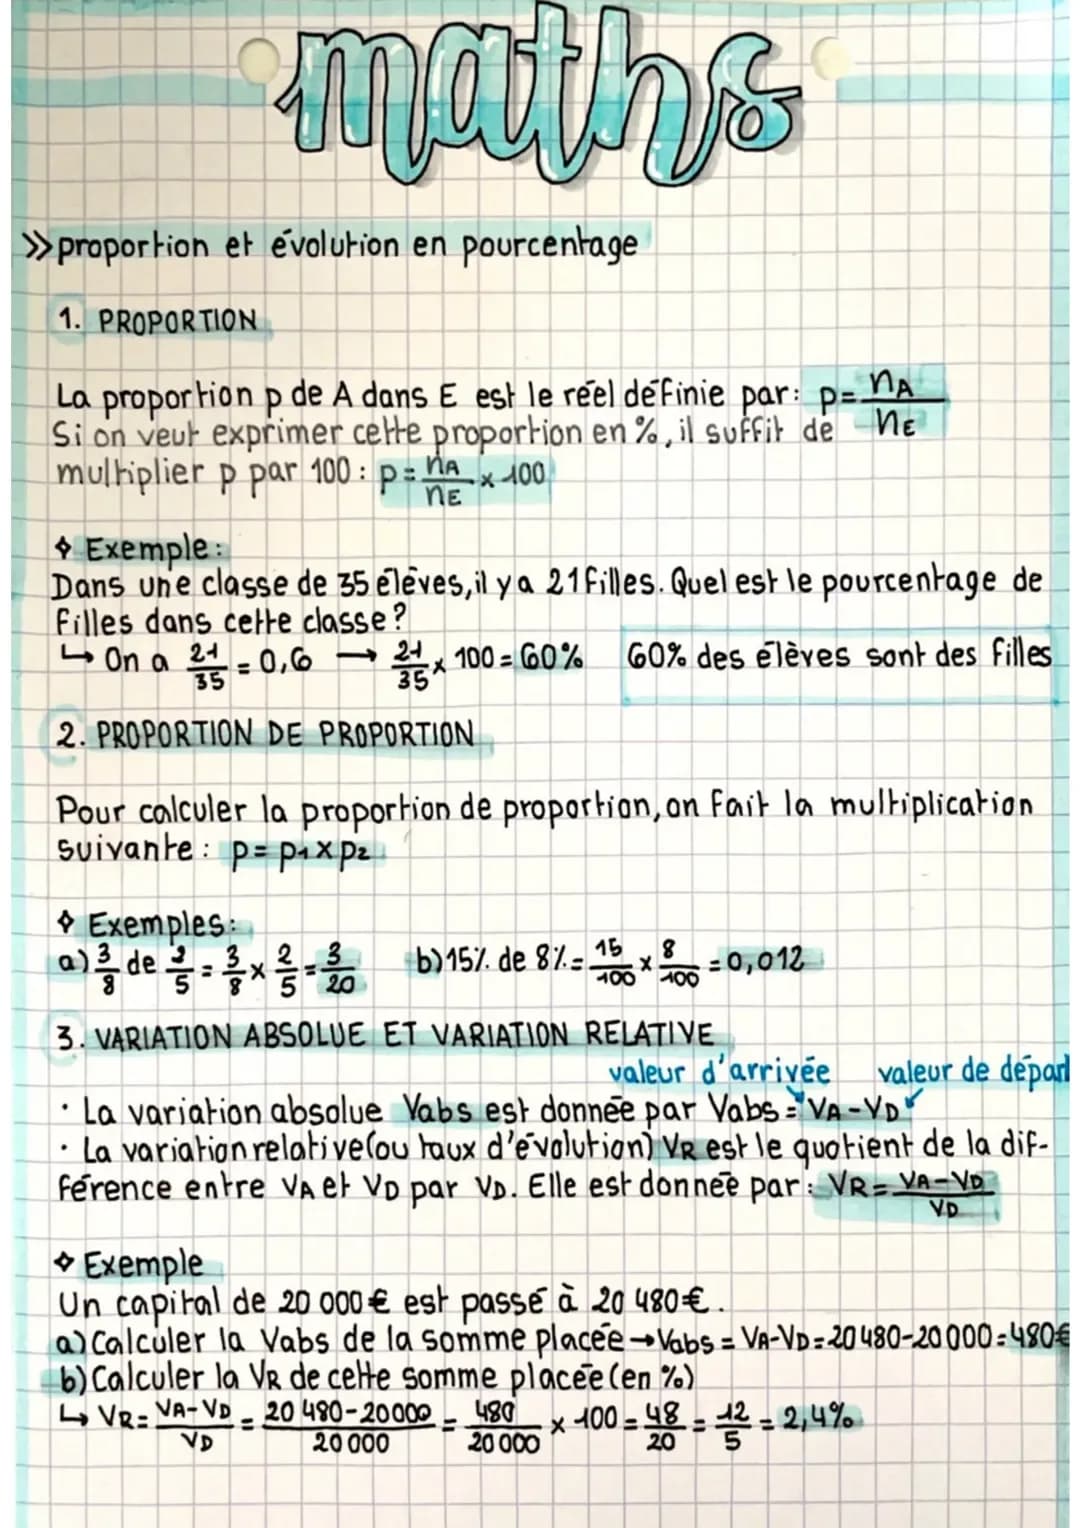 maths
>> proportion et évolution en pourcentage
1. PROPORTION
La proportion p de A dans E est le réel définie par : p = nA/nE
Si on veut exprimer cette proportion en %, il suffit de
multiplier p par 100 : p = nA/nE x 100
✧ Exemple :
Dans une classe de 35 élèves, il y a 21 filles. Quel est le pourcentage de
filles dans cette classe ?
↳ On a 21/35 = 0,6 → 21/35 x 100 = 60% 60% des élèves sont des filles
2. PROPORTION DE PROPORTION
Pour calculer la proportion de proportion, on fait la multiplication
suivante : p = p1 x p2
✧ Exemples :
a) 3/8 de 2/5 = 3/8 x 2/5 = 3/20 b) 15% de 8% = 15/100 x 8/100 = 0,012
3. VARIATION ABSOLUE ET VARIATION RELATIVE
valeur d'arrivée valeur de départ
· La variation absolue Vabs est donnée par Vabs = VA - VD
· La variation relative (ou taux d'évolution) VR est le quotient de la dif-
férence entre VA et VD par VD. Elle est donnée par : VR = VA - VD/VD
✧ Exemple
Un capital de 20 000 € est passé à 20 480 €.
a) Calculer la Vabs de la somme placée → Vabs = VA - VD = 20 480 - 20 000 = 480€
b) Calculer la VR de cette somme placée (en %)
↳ VR = VA - VD/VD = 20 480 - 20 000/20 000 = 480/20 000 x 100 = 48/20 = 12/5 = 2,4%